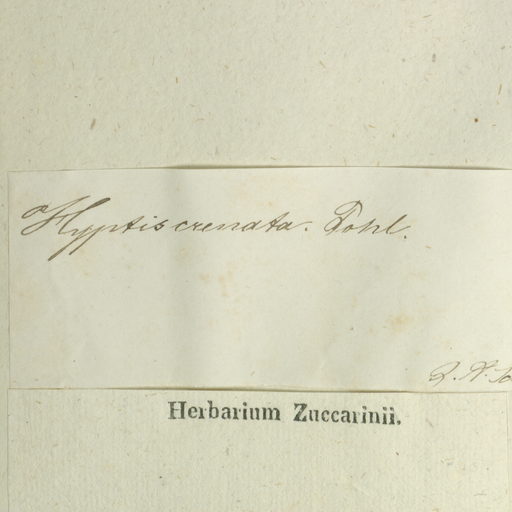 Hyptis crenata. Pohl.
Herbarium Zuccarinii.